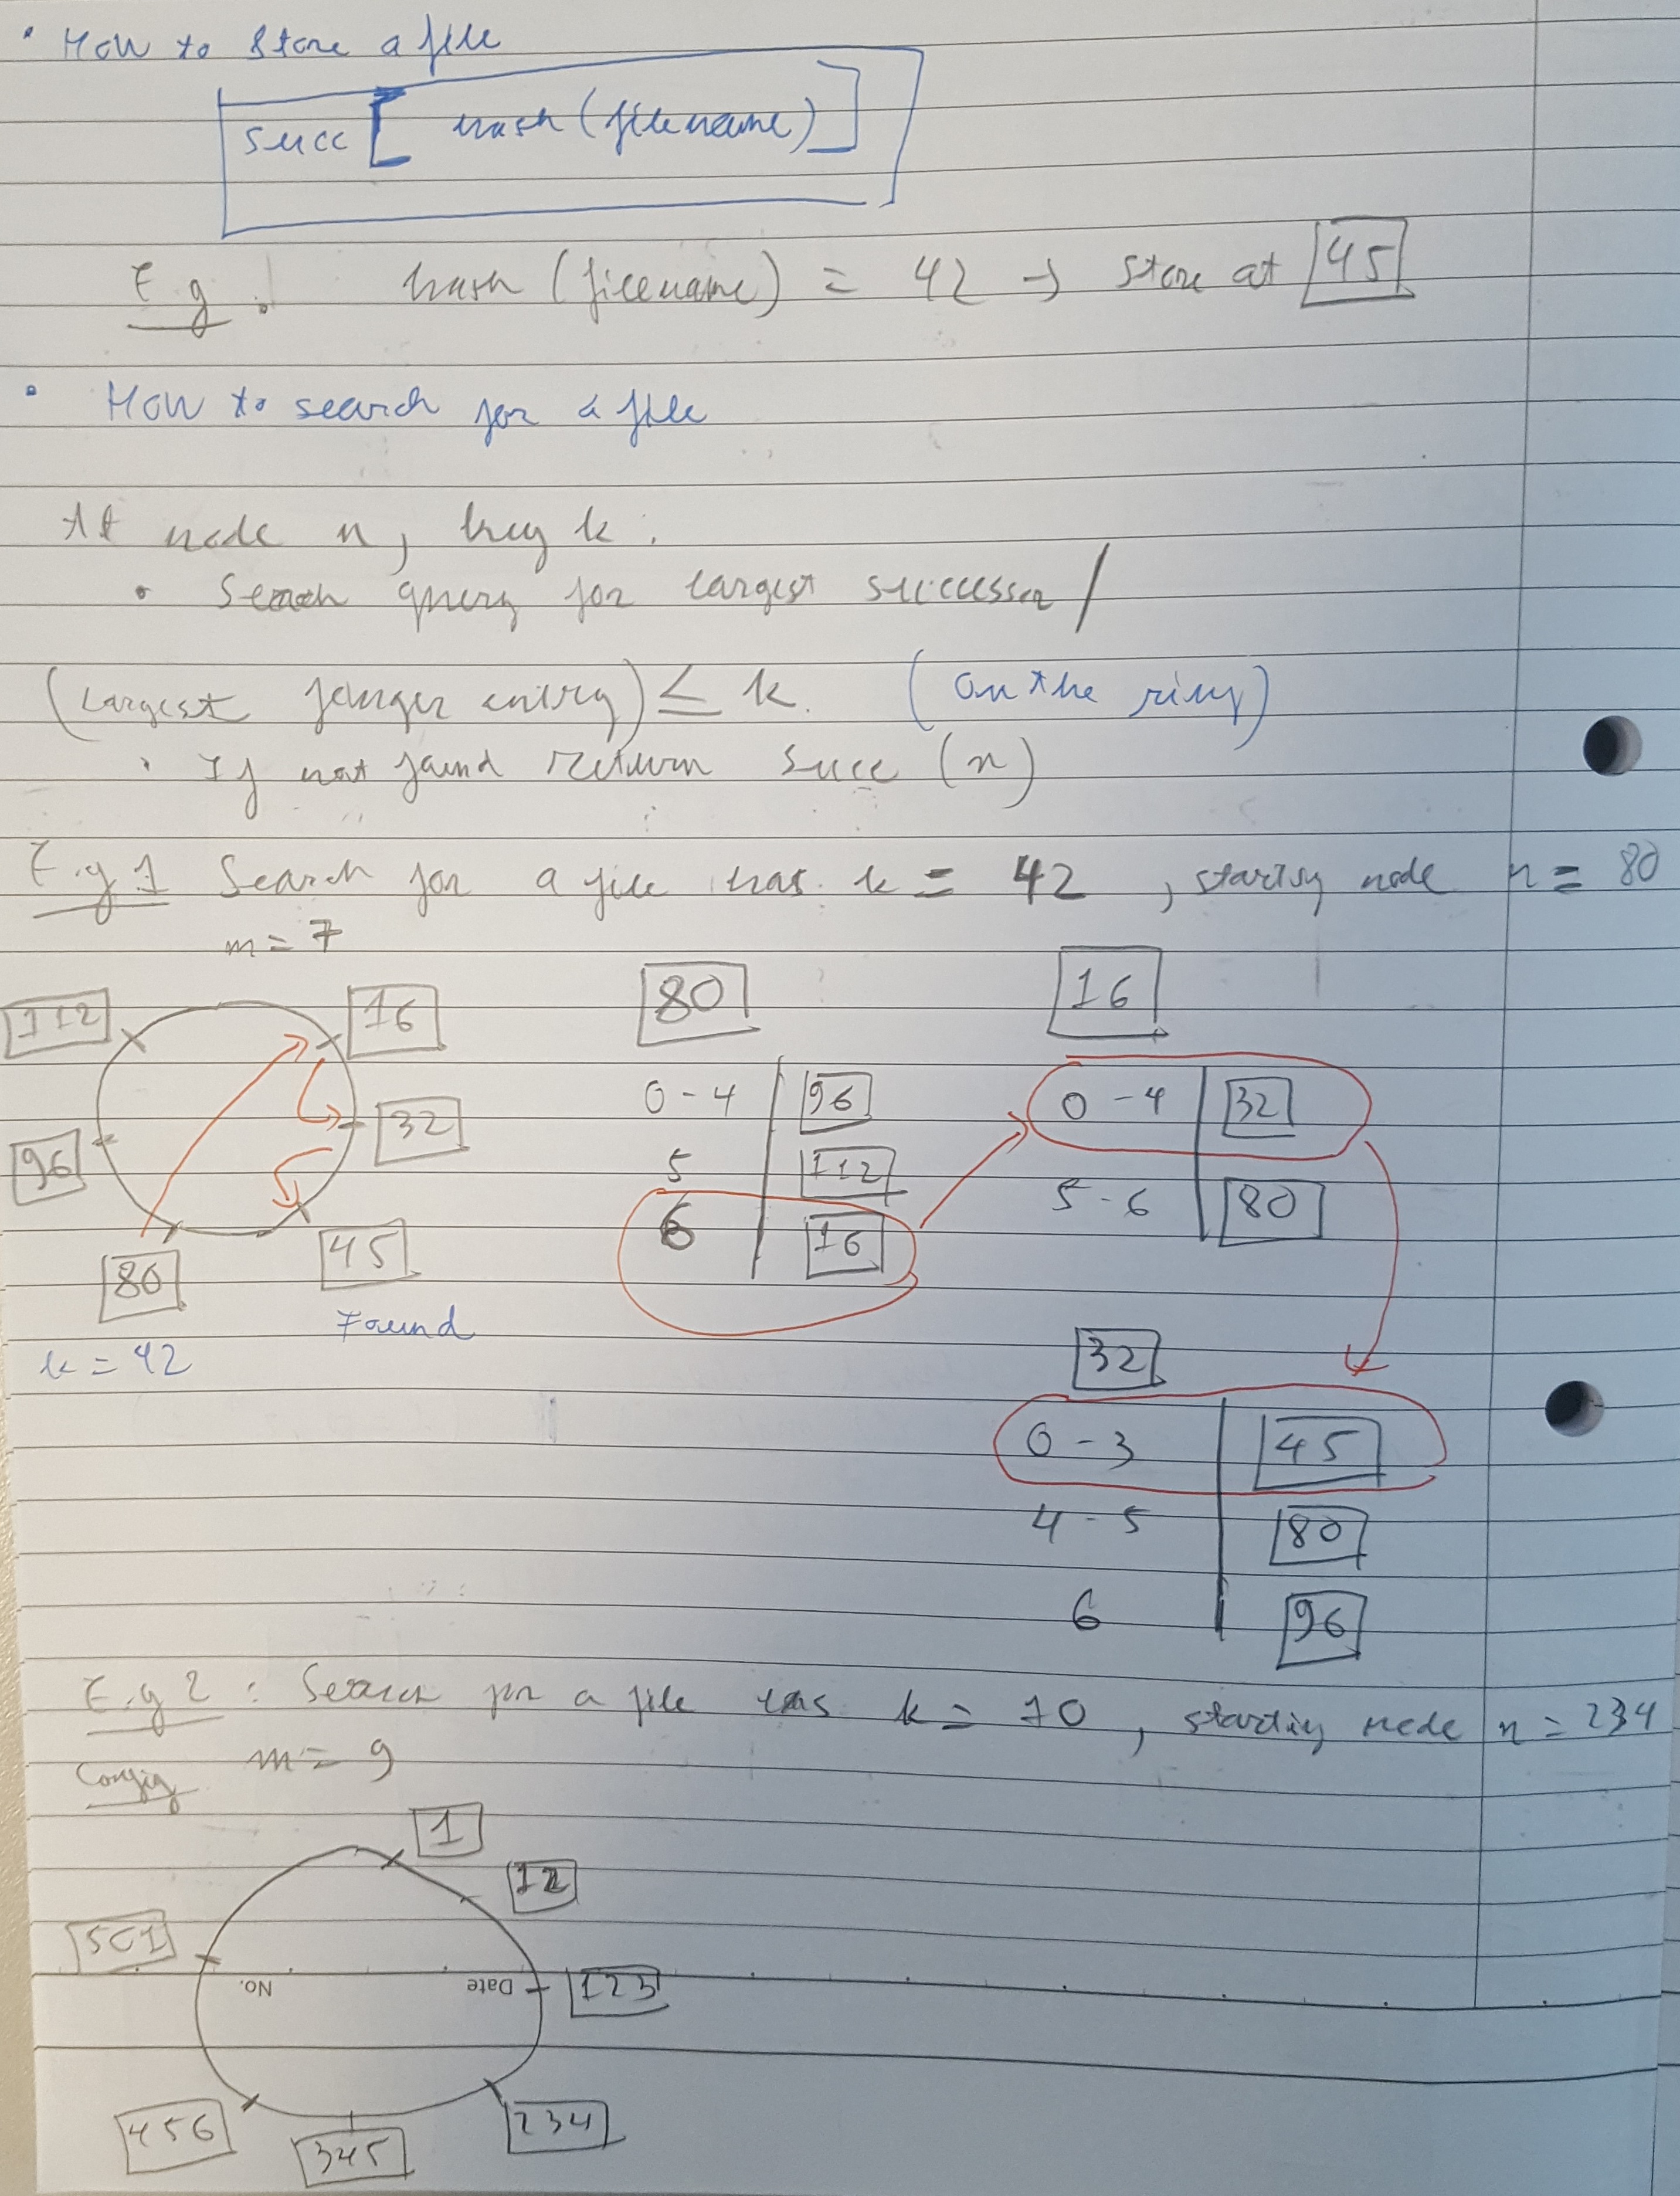 • How to store a file
succ [ hash (filename) ]
E.g. hash (filename) = 42 → store at 45
• How to search for a file
At node n, key k.
• Search query for largest successor /
(Largest finger entry) ≤ k. (on the ring)
• If not found return succ (n)
E.g 1 Search for a file has k = 42, starting node n = 80
m = 7
112 16
96 32
80 45
Found
k = 42
80
0 - 4 96
5 112
6 16
16
0 - 4 32
5 - 6 80
32
0 - 3 45
4 - 5 80
6 96
E.g 2 : Search for a file has k = 10, starting node n = 234
Config m = 9
1
12
501
123
No. Date
456 345 234